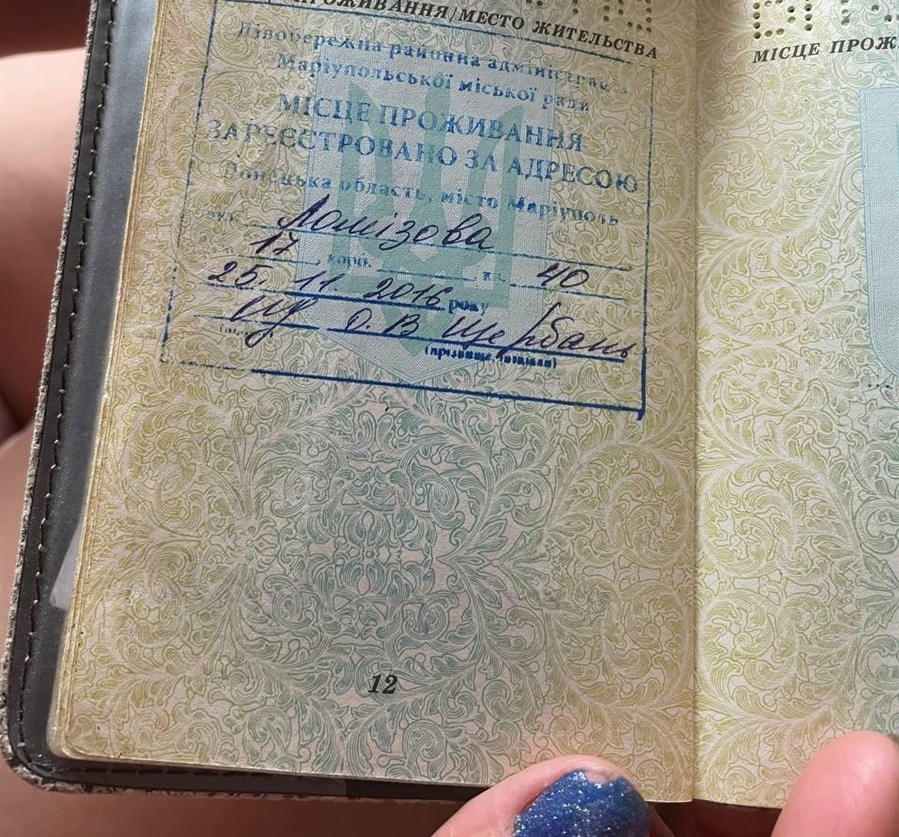 ПРОЖИВАННЯ/МЕСТО ЖИТЕЛЬСТВА
Лівобережна районна адміністрація
Маріупольської міської ради
МІСЦЕ ПРОЖИВАННЯ
ЗАРЕЄСТРОВАНО ЗА АДРЕСОЮ
Донецька область, місто Маріуполь
вул.
17, корп. кв. 40
25. 11 2016 року
О. В Щербань
(прізвище, ініціали)
12
МІСЦЕ ПРОЖ